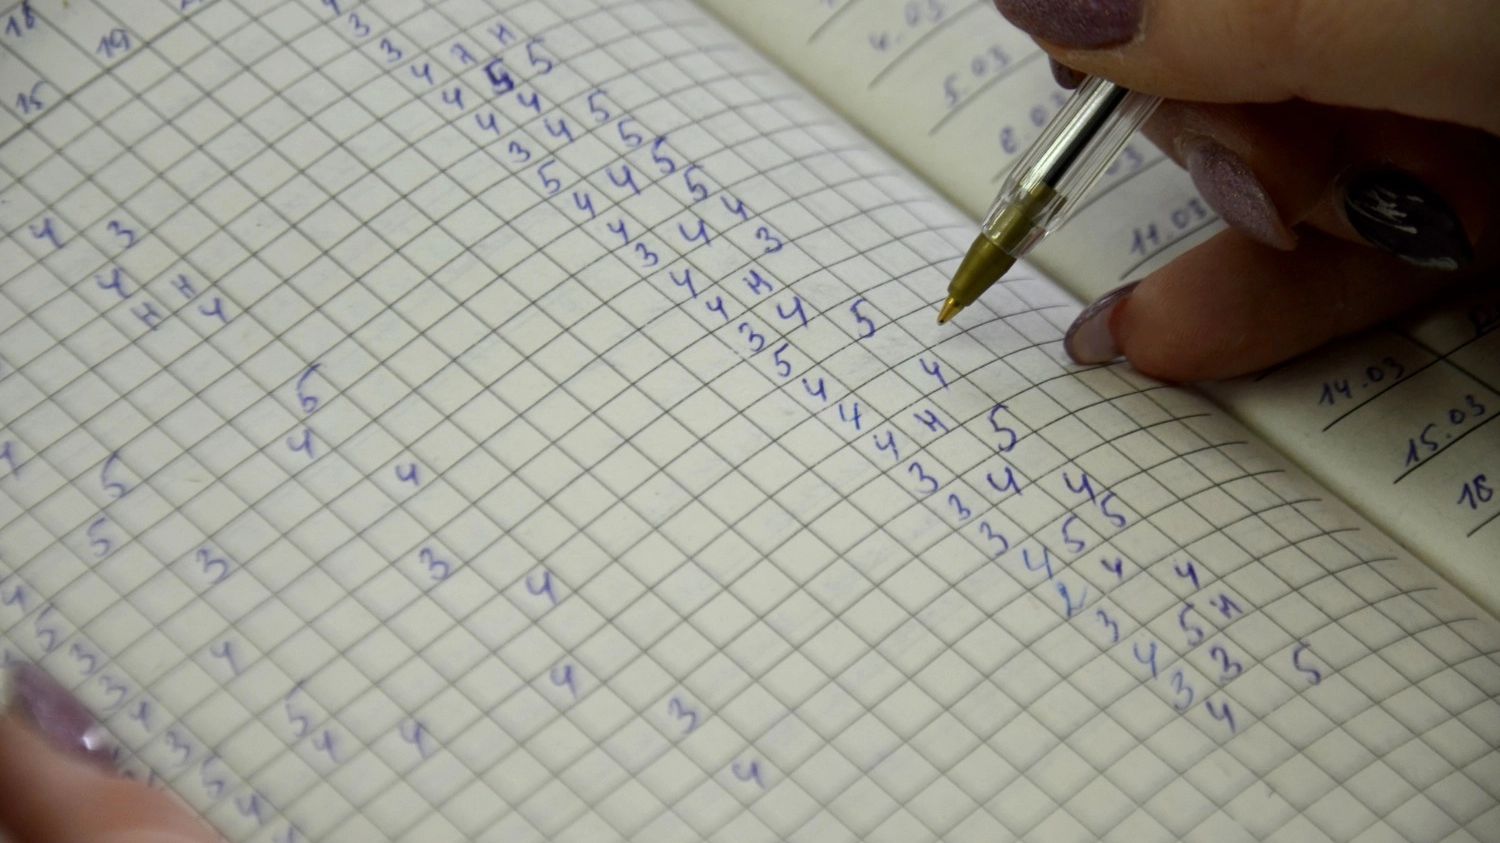 18 19
15
3
3
4 н н
4 5 5
4 4
3 4 5
5 5
4 4 5
4 5
3 4 4
4 3
4 н
3 4
5 5
4
4 4
4 н
3 5
3 4
3 4
4 5 5
2 4
3 4
4 5 н
3 3
4 5
4 3
4 н
н 4
5
4
4
5
5
3
3
4
4
5
3
3
4
4
5
4
3
4
4.03
5.03
11.03
14.03
15.03
18